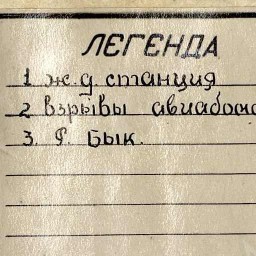 ЛЕГЕНДА
1 ж.д. станция
2 взрывы авиабомб
3. р. Бык.